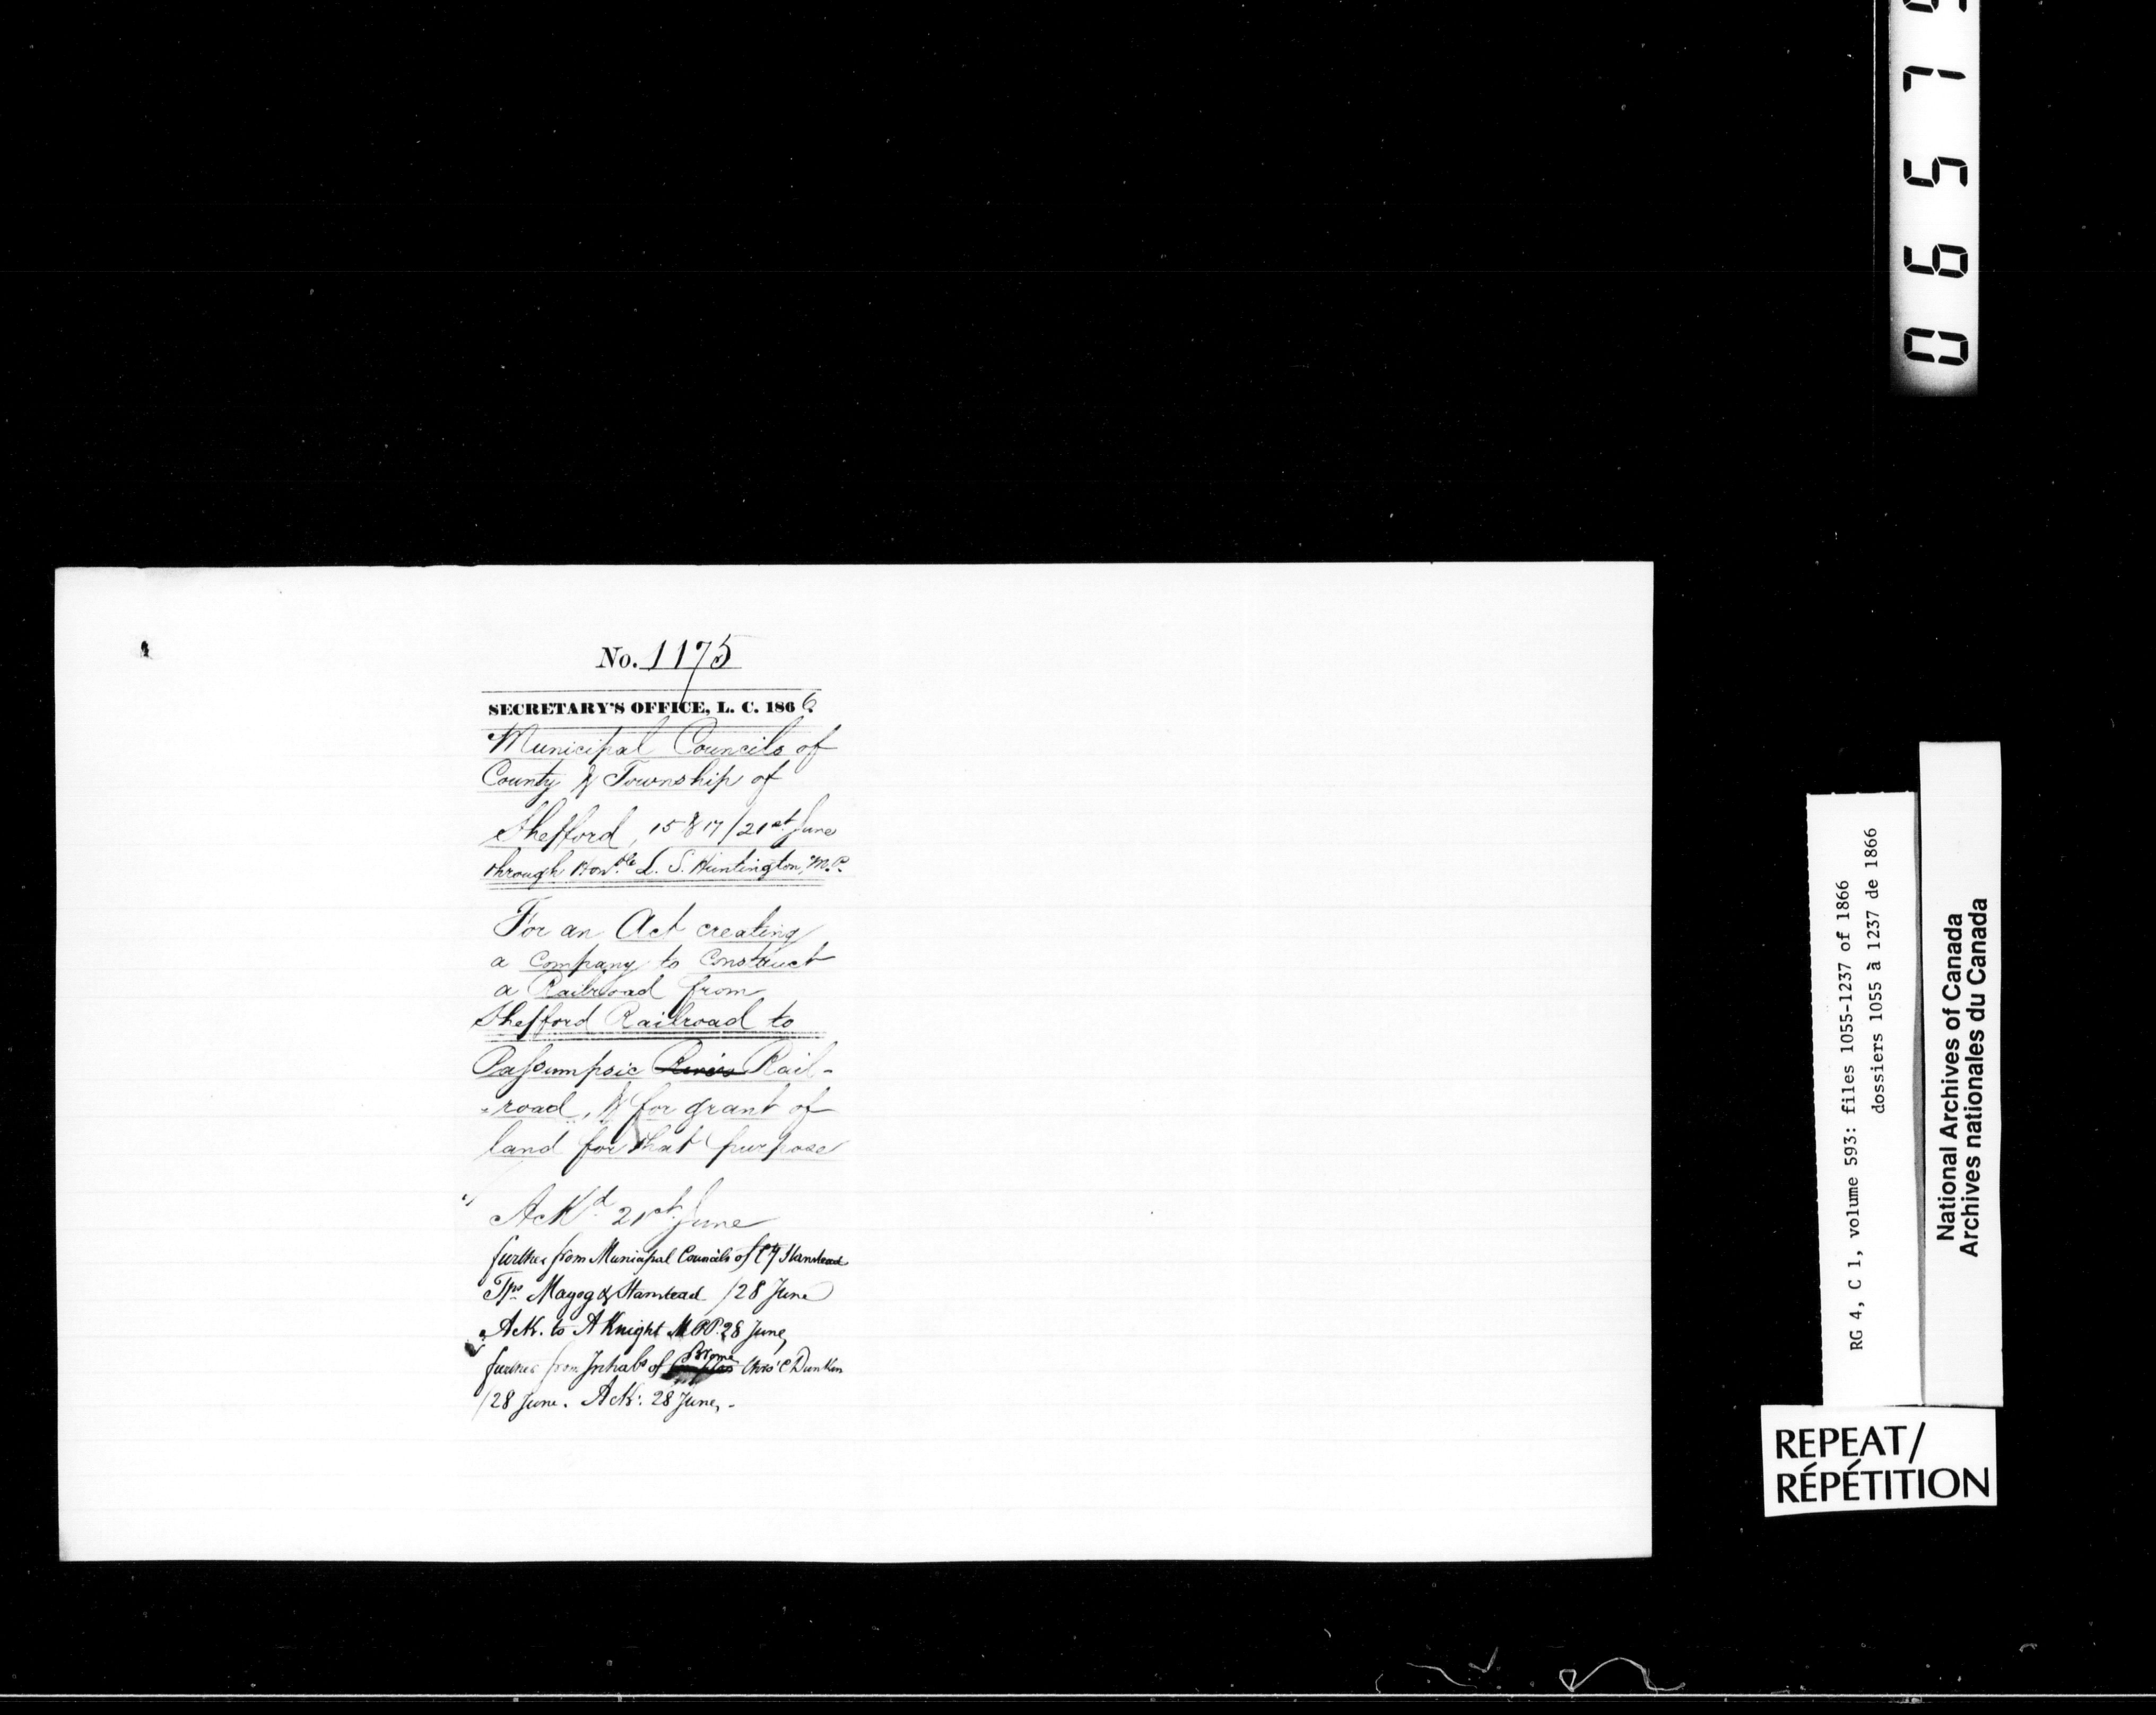 No. 1175
SECRETARY'S OFFICE, L. C. 1866
Municipal Councils of
County & Township of
Shefford, 15 & 17 / 21st June
through Hon.ble L. S. Huntington, M.P.
For an Act creating
a Company to Construct
a Railroad from
Shefford Railroad to
Passumpsic River Rail-
-road, & for grant of
land for that purpose
Ackd 21st June
further from Municipal Councils of Cy Stanstead
Tps Magog & Stanstead /28 June
Ack. to A Knight M.P.P. 28 June,
further from Inhabs of Brome C Dunkin
/28 June. Ack: 28 June, -
0 6 5 7
RG 4, C 1, volume 593: files 1055-1237 of 1866
dossiers 1055 à 1237 de 1866
National Archives of Canada
Archives nationales du Canada
REPEAT/
RÉPÉTITION